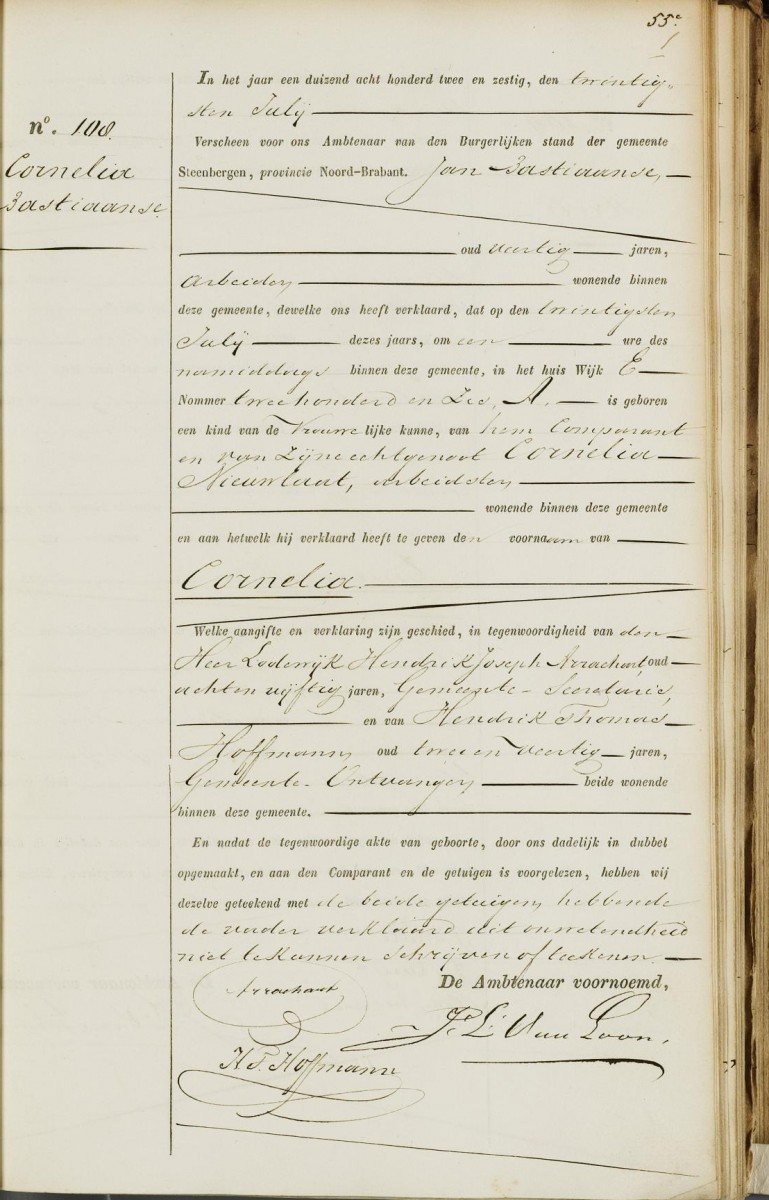 55e
1
nº. 108.
Cornelia
Bastiaanse
In het jaar een duizend acht honderd twee en zestig, den twintig-
sten Julij
Verscheen voor ons Ambtenaar van den Burgerlijken stand der gemeente
Steenbergen, provincie Noord-Brabant. Jan Bastiaanse,
oud veertig jaren,
arbeider wonende binnen
deze gemeente, dewelke ons heeft verklaard, dat op den twintigsten
Julij dezes jaars, om een ure des
namiddags binnen deze gemeente, in het huis Wijk E
Nommer twee honderd en zes, A. is geboren
een kind van de Vrouwelijke kunne, van hem Comparant
en van zijne echtgenoot Cornelia
Nieuwlaat, arbeidster
wonende binnen deze gemeente
en aan hetwelk hij verklaard heeft te geven den voornaam van
Cornelia.
Welke aangifte en verklaring zijn geschied, in tegenwoordigheid van den
Heer Lodewijk Hendrik Joseph Arrachart, oud
achtenvijftig jaren, Gemeente-Secretaris,
en van Hendrik Thomas
Hoffmann, oud twee en veertig jaren,
Gemeente-Ontvanger, beide wonende
binnen deze gemeente.
En nadat de tegenwoordige akte van geboorte, door ons dadelijk in dubbel
opgemaakt, en aan den Comparant en de getuigen is voorgelezen, hebben wij
dezelve geteekend met de beide getuigen, hebbende
de vader verklaard uit onwetendheid
niet te kunnen schrijven of teekenen.
De Ambtenaar voornoemd,
Arrachart
J. L. Van Loon.
H. T. Hoffmann